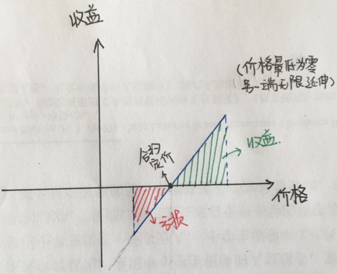 收益
(价格最低为零
另一端无限延伸)
合约
定价
收益.
价格
亏损